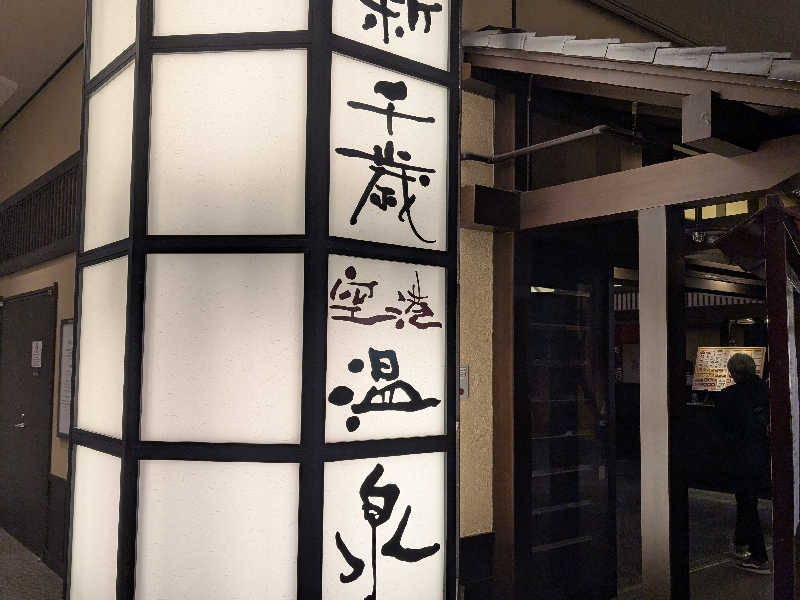 新
千
歳
空港
温
泉